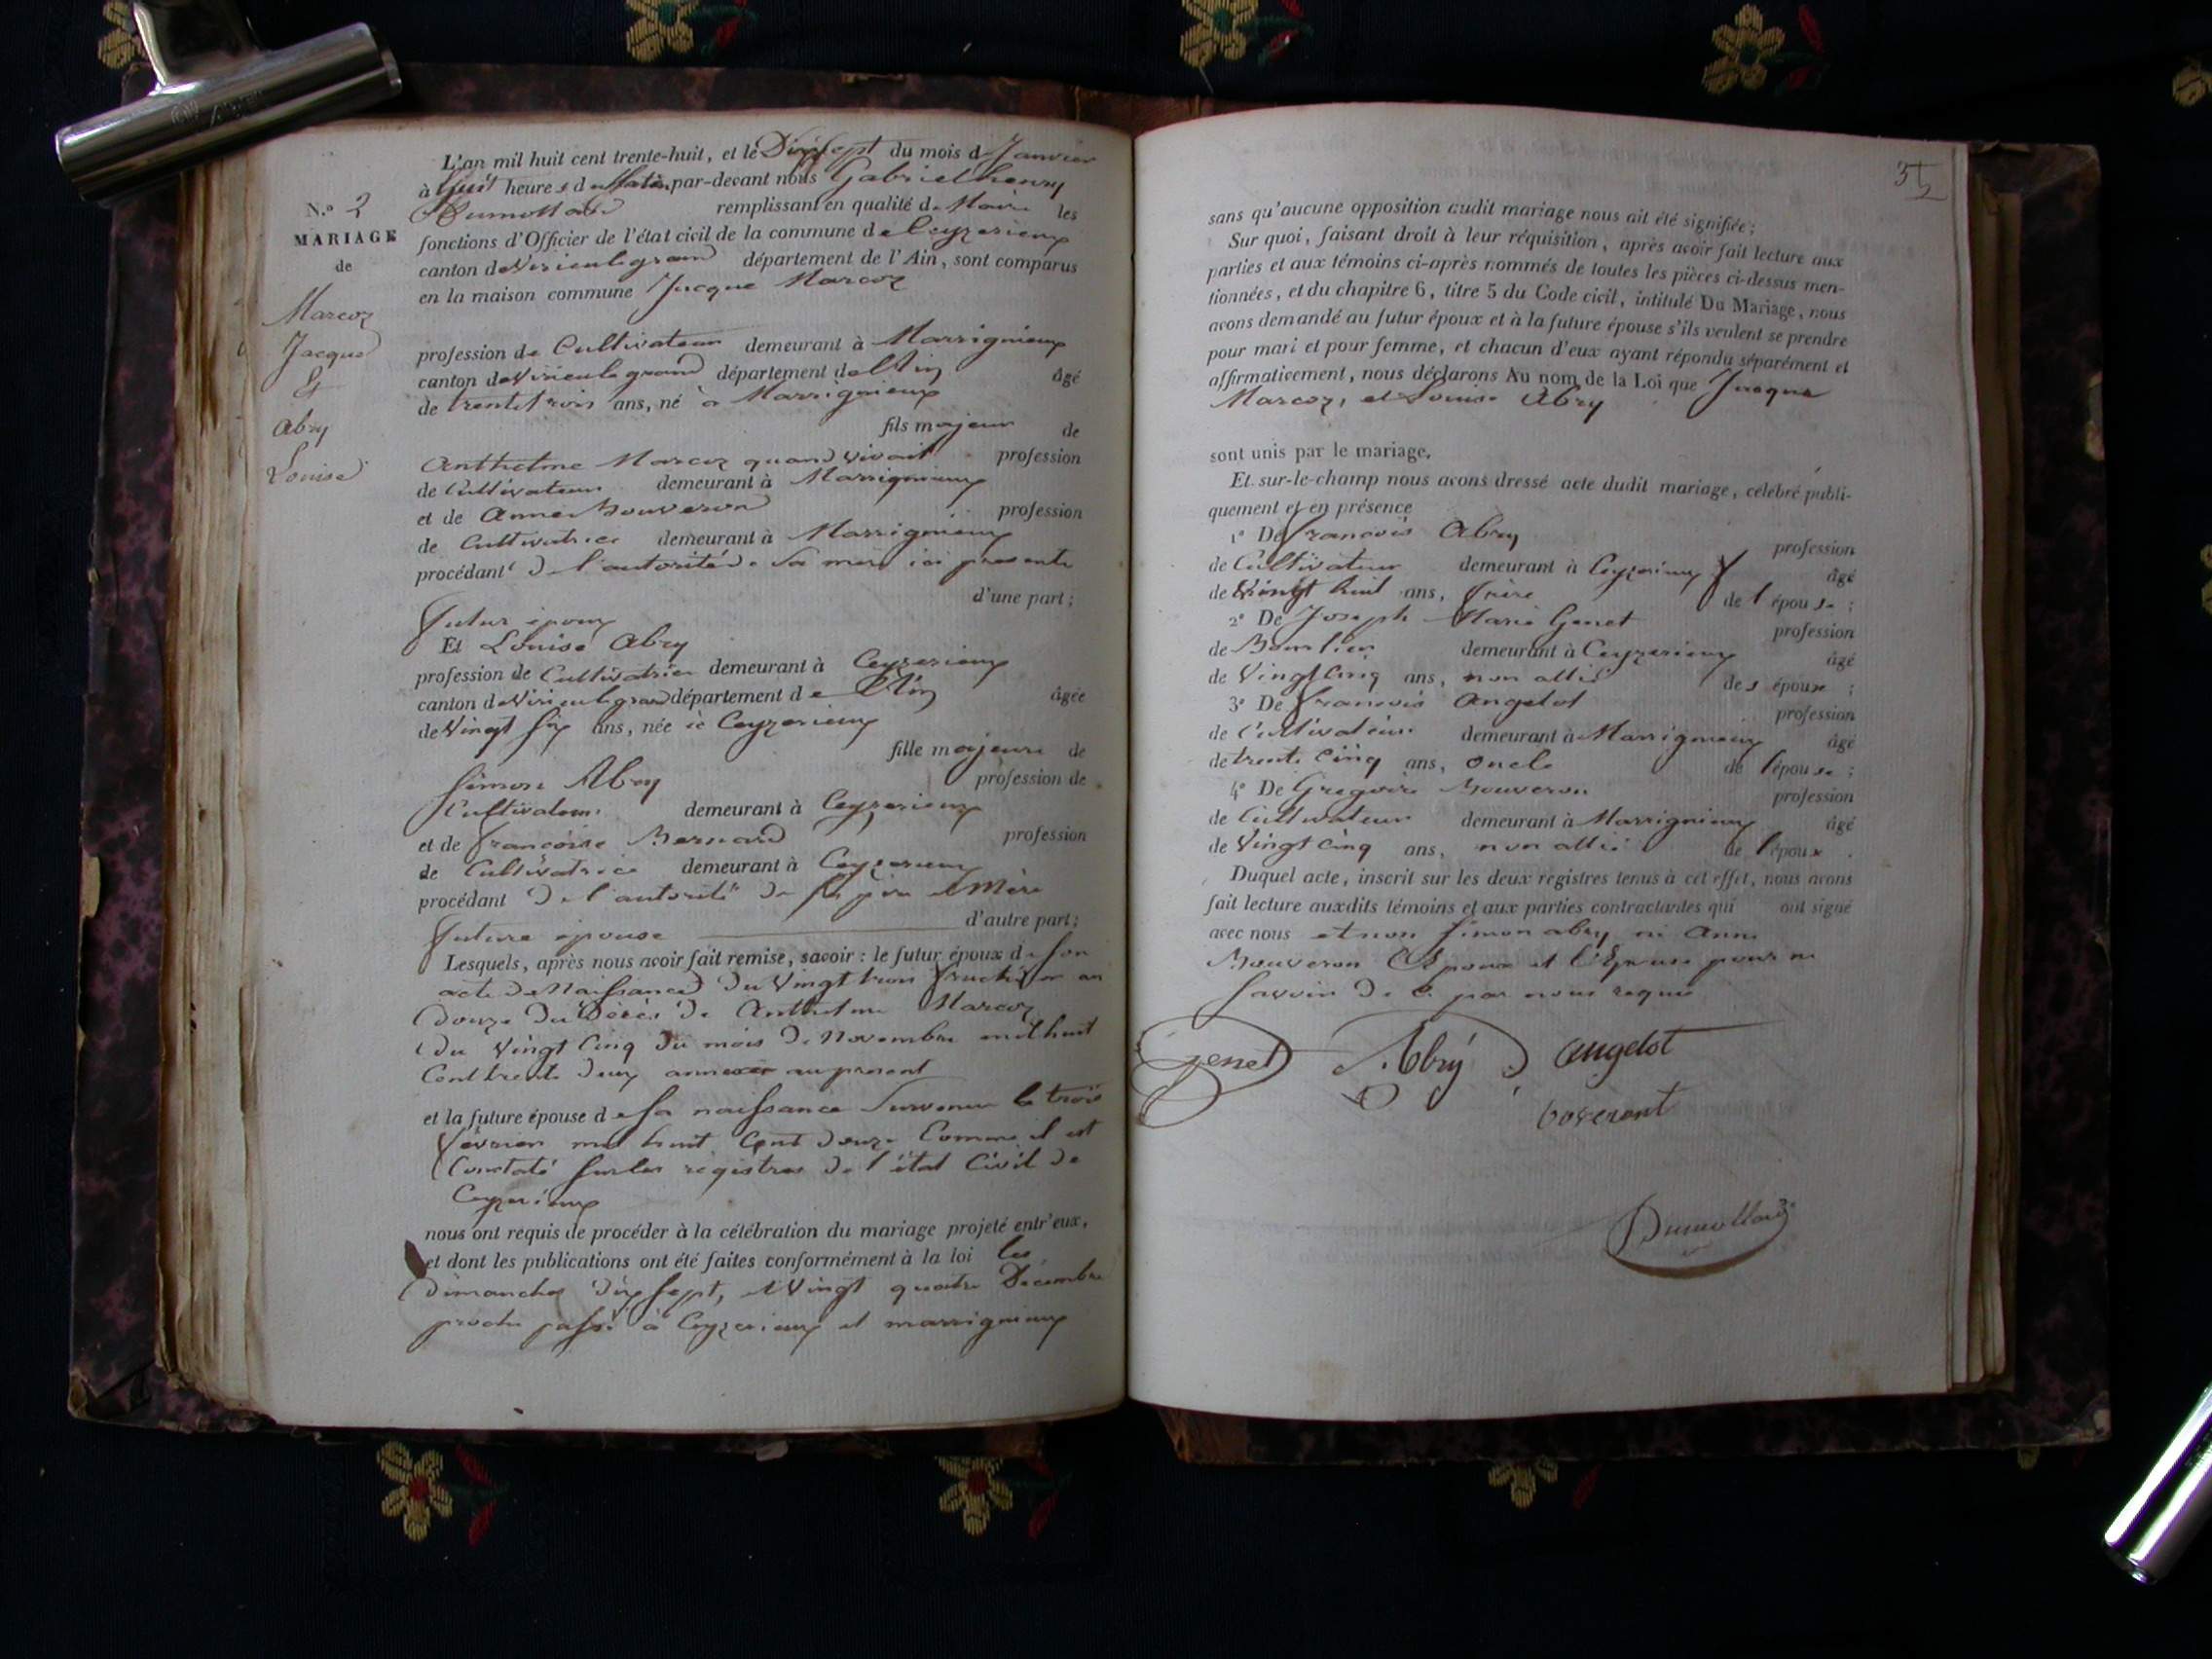 L'an mil huit cent trente-huit, et le Dix sept du mois de Janvier
à huit heures du Matin par-devant nous Gabriel henry
N.° 2 Dumollard remplissant en qualité de Maire les
MARIAGE fonctions d'Officier de l'état civil de la commune de Ceyzerieux
de canton de Virieu le grand département de l'Ain, sont comparus
en la maison commune Jacque Marcoz
Marcoz
Jacque profession de Cultivateur demeurant à Marrignieux
& canton de Virieu le grand département de l'Ain âgé
de trente trois ans, né à Marrignieux
Abry fils majeur de
Louise Anthelme Marcoz quand vivait profession
de Cultivateur demeurant à Marrignieux
et de Anne Bouveron profession
de Cultivatrice demeurant à Marrignieux
procédant de l'autorité de sa mere ici presente
d'une part;
futur époux
Et Louise Abry
profession de Cultivatrice demeurant à Ceyzerieux
canton de Virieu le grand département de l'Ain âgée
de Vingt six ans, née à Ceyzerieux
fille majeure de
Simon Abry profession de
Cultivateur demeurant à Ceyzerieux
et de francoise Bernard profession
de Cultivatrice demeurant à Ceyzerieux
procédant de l'autorité de ses père et Mère
d'autre part;
future épouse
Lesquels, après nous avoir fait remise, savoir : le futur époux de son
acte de Naissance du Vingt trois fructidor an
Douze du Décès de Anthelme Marcoz
du Vingt Cinq du mois de Novembre mil huit
Cent trente deux au present
et la future épouse de sa naissance survenue le trois
février mil huit Cent douze Comme il est
Constaté sur les registres de l'état Civil de
Ceyzerieux
nous ont requis de procéder à la célébration du mariage projeté entr'eux,
et dont les publications ont été faites conformément à la loi les
dimanches dix sept, et Vingt quatre Décembre
proche passé à Ceyzerieux et marrignieux
sans qu'aucune opposition audit mariage nous ait été signifiée;
Sur quoi, faisant droit à leur réquisition, après avoir fait lecture aux
parties et aux témoins ci-après nommés de toutes les pièces ci-dessus men-
tionnées, et du chapitre 6, titre 5 du Code civil, intitulé Du Mariage, nous
avons demandé au futur époux et à la future épouse s'ils veulent se prendre
pour mari et pour femme, et chacun d'eux ayant répondu séparément et
affirmativement, nous déclarons Au nom de la Loi que Jacque
Marcoz, et Louise Abry
sont unis par le mariage.
Et sur-le-champ nous avons dressé acte dudit mariage, célébré publi-
quement et en présence
1° De francois Abry profession
de Cultivateur demeurant à Ceyzerieux âgé
de Vingt huit ans, frère de l'épouse ;
2° De Joseph Marie Genet profession
de demeurant à Ceyzerieux âgé
de Vingt Cinq ans, non allié des époux ;
3° De francois Angelot profession
de Cultivateur demeurant à Marrignieux âgé
de trente Cinq ans, oncle de l'épouse ;
4° De Gregoire Bouveron profession
de Cultivateur demeurant à Marrignieux âgé
de Vingt Cinq ans, non allié de l'époux .
Duquel acte, inscrit sur les deux registres tenus à cet effet, nous avons
fait lecture auxdits témoins et aux parties contractantes qui ont signé
avec nous et non Simon abry ni Anne
Bouveron l'Epoux et l'Epouse pour ne
savoir de ce par nous requis
Genet Abry angelot
boveront
Dumollard